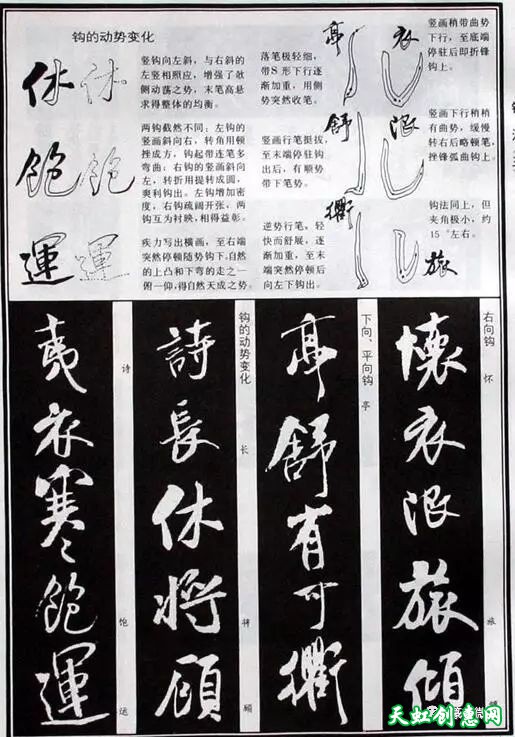 钩的动势变化
休 休
竖钩向左斜，与右斜的
左竖相照应，增强了欹
侧动荡之势，末笔高悬
求得整体的均衡。
飽 飽
两钩截然不同：左钩的
竖画斜向右，转角用顿
挫成方，钩起带连笔多
弯曲；右钩的竖画斜向
左，转折用提转成圆，
爽利钩出。左钩增加密
度，右钩疏阔开张，两
钩互为衬映，相得益彰。
運 運
疾力写出横画，至右端
突然停顿随势钩下，自然
的上凸和下弯的走之一
俯一仰，得自然天成之势。
落笔极轻细，
带S形下行逐
渐加重，用侧
势突然收笔。
亭
竖画行笔挺拔，
至末端停驻钩
出后，有顺势
带下笔势。
舒
逆势行笔，轻
快而舒展，逐
渐加重，至末
端突然停顿后
向左下钩出。
衢
衣
竖画稍带曲势
下行，至底端
停驻后即折锋
钩上。
浪
竖画下行稍稍
有曲势，缓慢
转右后略顿笔，
挫锋弧曲钩上。
钩法同上，但
夹角极小，约
15°左右。
旅
右向钩 怀
旅
懷衣浪旅傾
下向、平向钩 亭
亭舒有可衢
钩的动势变化
长
将
顾
詩長休將顧
诗
饱
运
夷衣寒飽運
天虹创意网